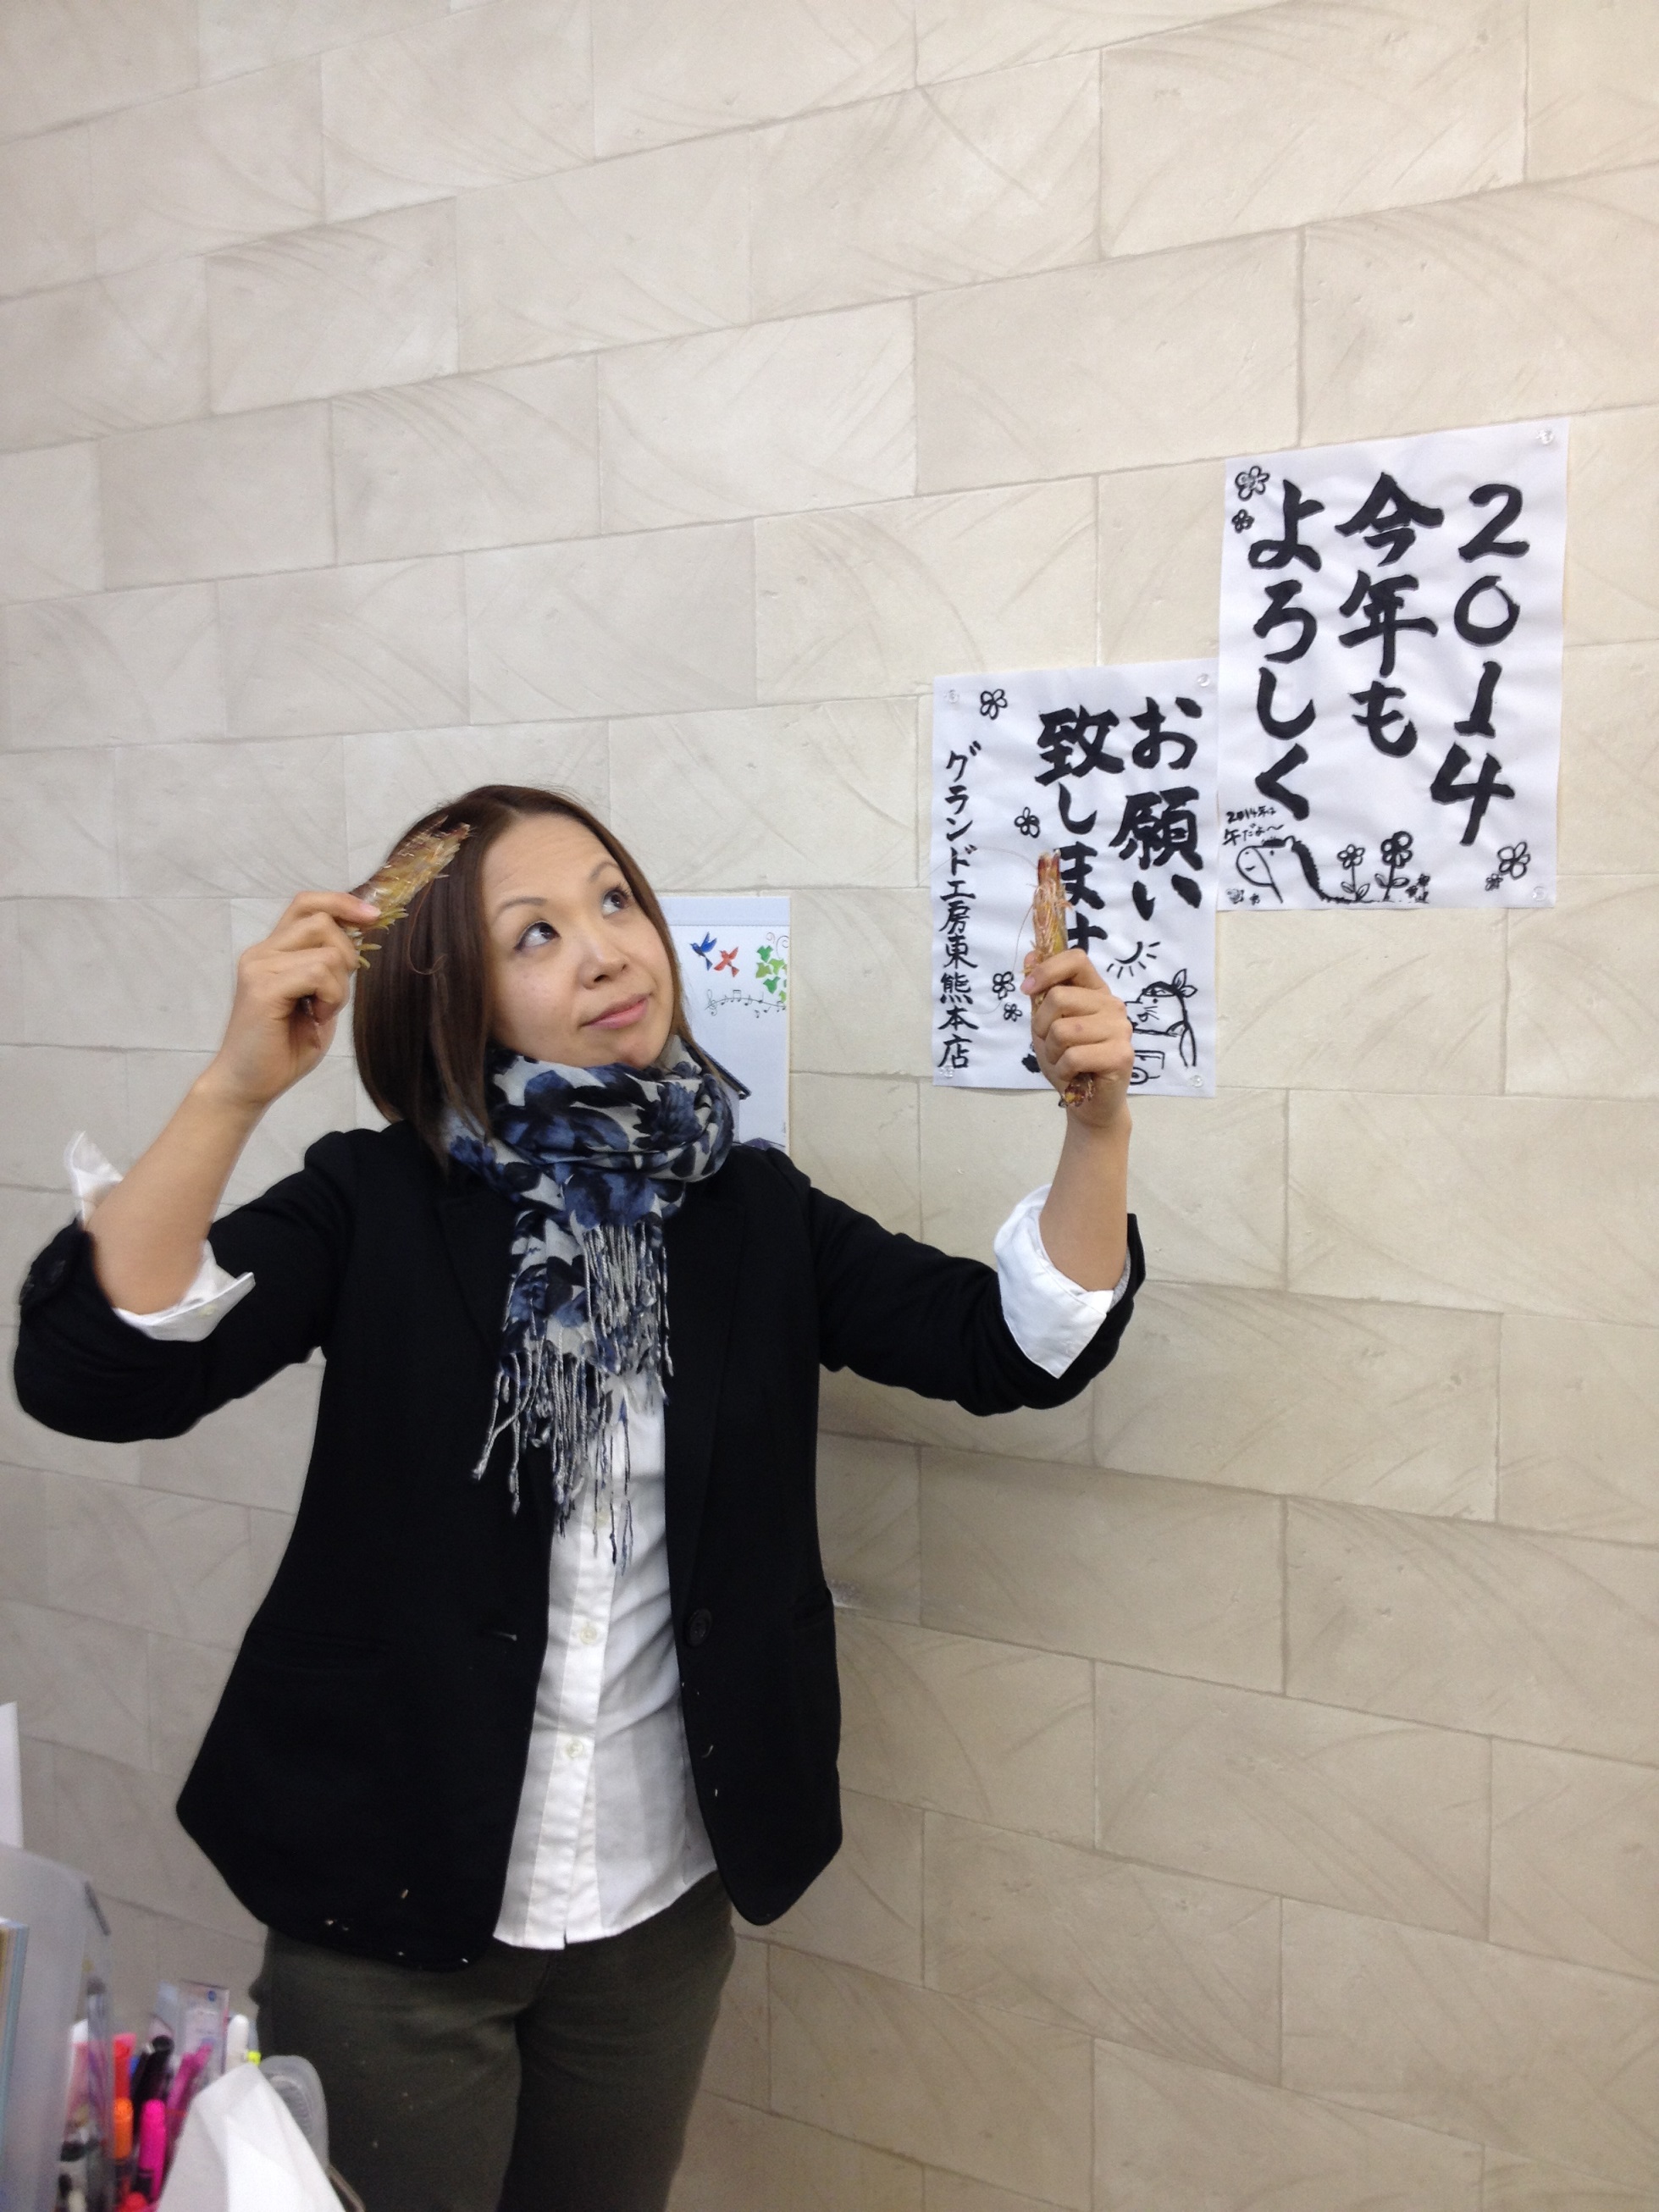 2014
今年も
よろしく
2014年は
午だよ〜
お願い
致します
グランド工房東熊本店